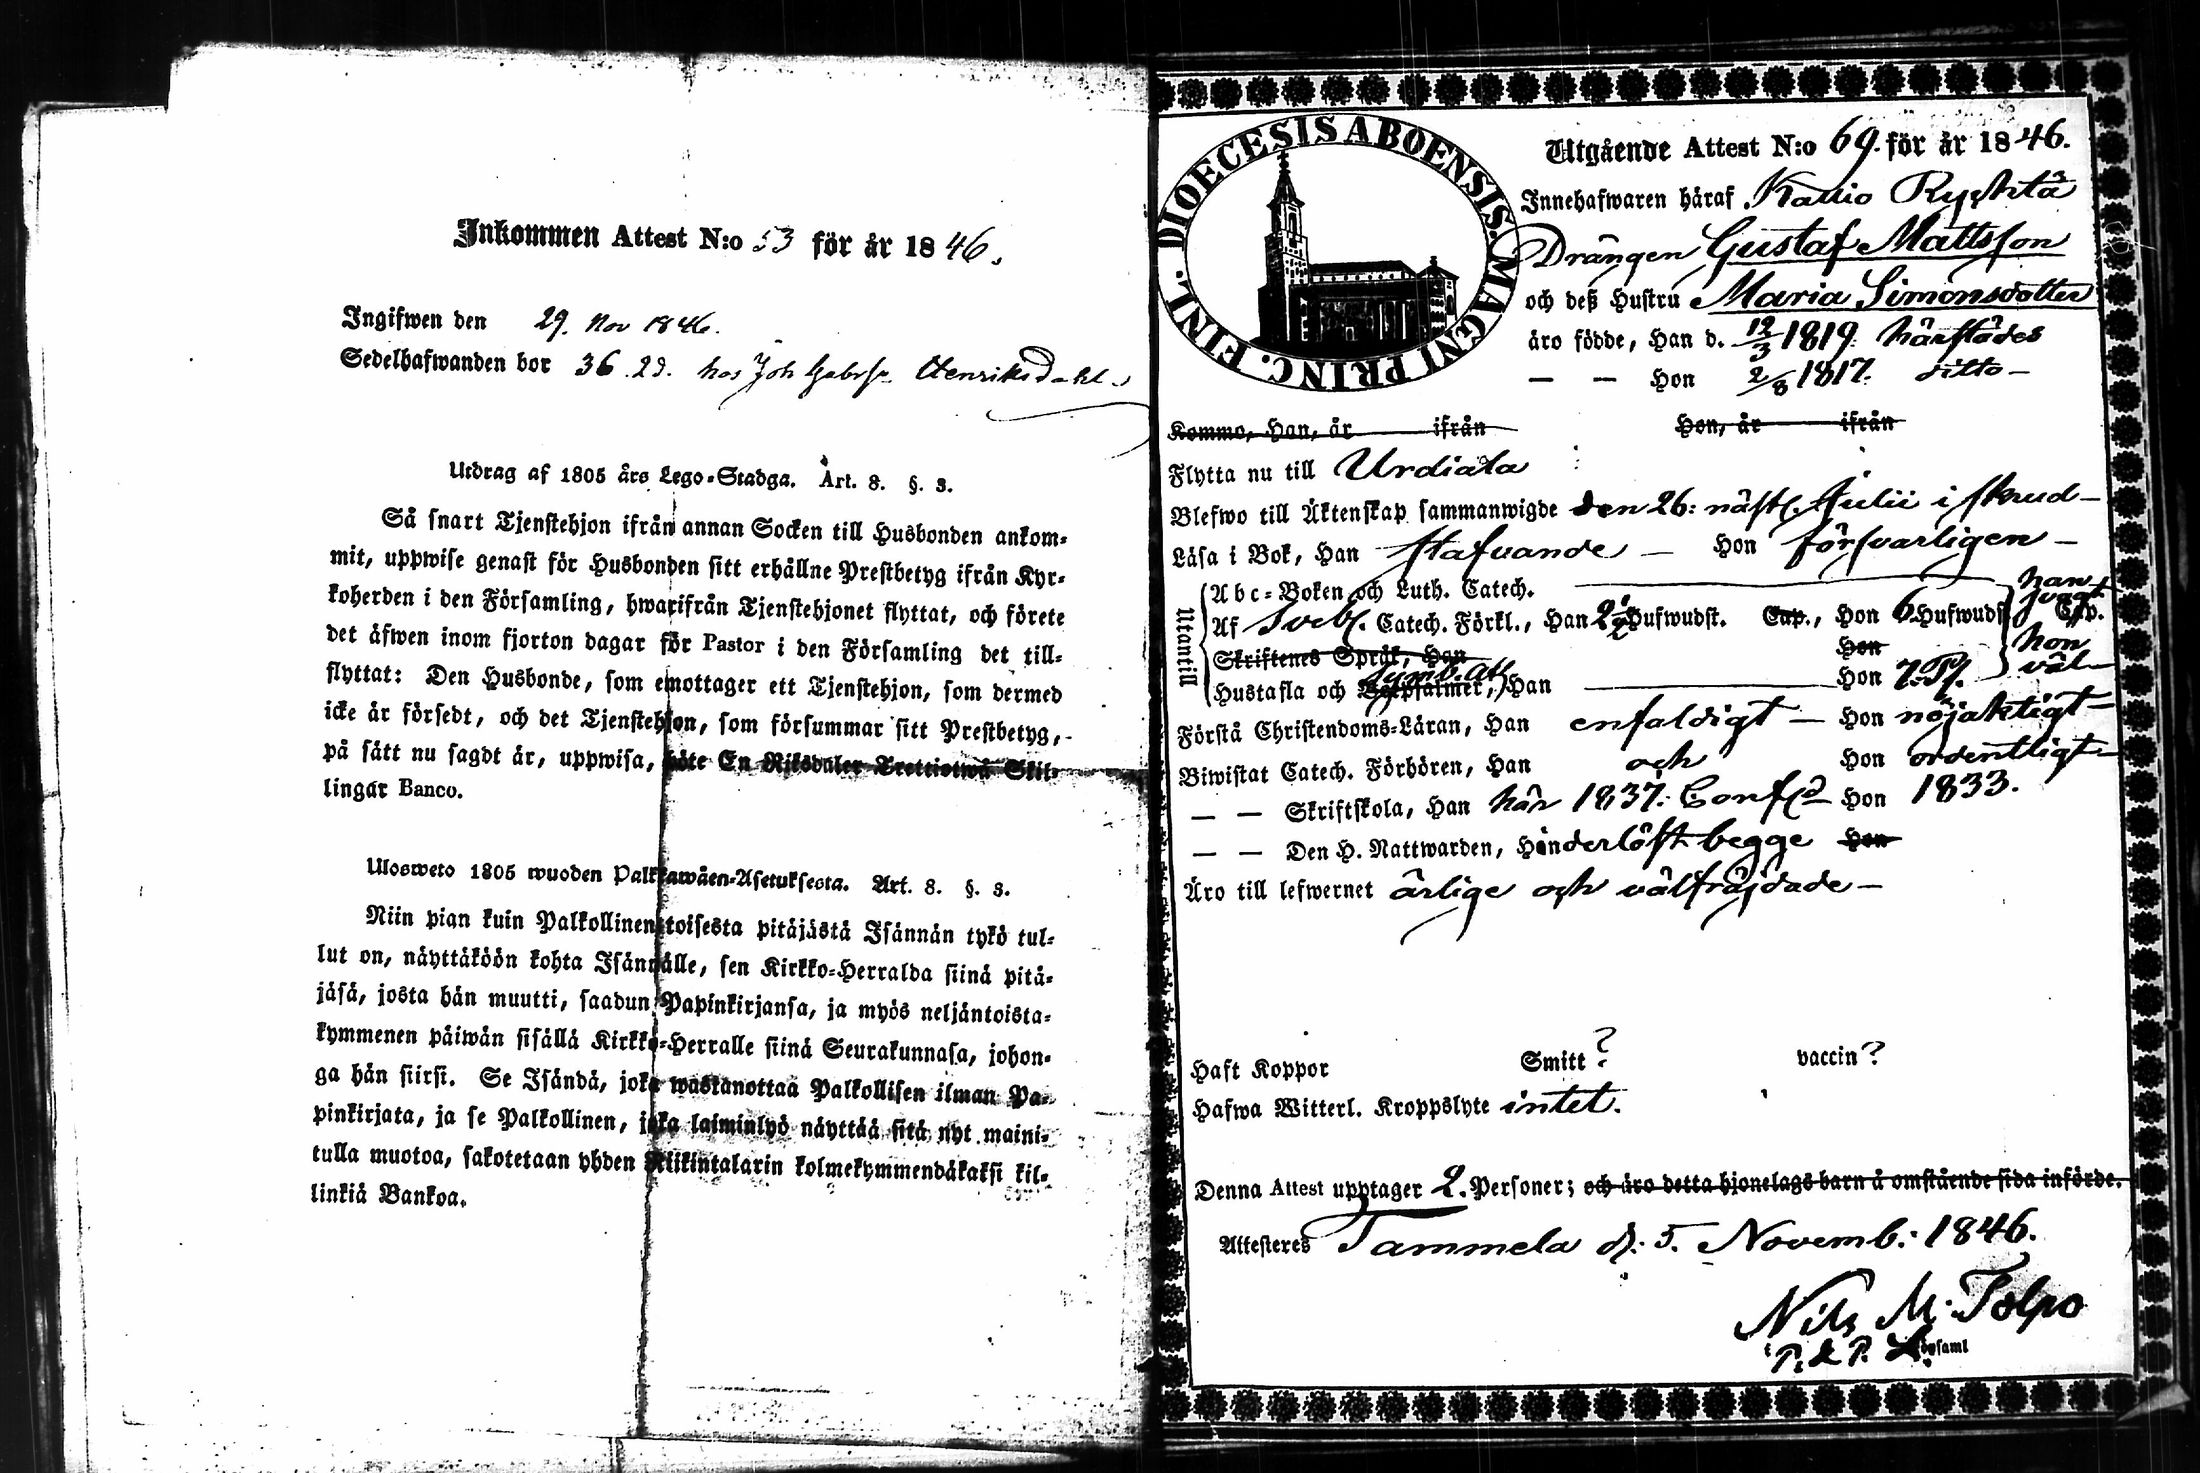 Inkommen Attest N:o 53 för år 1846.
Ingifwen den 29. Nov 1846.
Sedelhafwanden bor 36. 2d. hos Joh Gabrs. Henriksdahl
Utdrag af 1805 års Lego-Stadga. Art. 8. §. 3.
Så snart Tjenstehjon ifrån annan Socken till Husbonden ankom-
mit, uppwise genast för Husbonden sitt erhållne Prestbetyg ifrån Kyr-
koherden i den Församling, hwarifrån Tjenstehjonet flyttat, och förete
det äfwen inom fjorton dagar för Pastor i den Församling det till-
flyttat: Den Husbonde, som emottager ett Tjenstehjon, som dermed
icke är försedt, och det Tjenstehjon, som försummar sitt Prestbetyg,
på sätt nu sagdt är, uppwisa, böte En Riksdaler Trettiotwå Skil-
lingar Banco.
Ulosweto 1805 wuoden Palkkawäen-Asetuksesta. Art. 8. §. 3.
Niin pian kuin Palkollinen toisesta pitäjästä Isännän tykö tul-
lut on, näyttäköön kohta Isännälle, sen Kirkko-Herralda siinä pitä-
jäsä, josta hän muutti, saadun Papinkirjansa, ja myös neljäntoista-
kymmenen päiwän sisällä Kirkko-Herralle siinä Seurakunnasa, johon-
ga hän siirsi. Se Isändä, joka wastanottaa Palkollisen ilman Pa-
pinkirjata, ja se Palkollinen, joka laiminlyö näyttää sitä nyt maini-
tulla muotoa, sakotetaan yhden Riikintalarin kolmekymmendäkaksi kil-
linkiä Bankoa.
DIOECESIS ABOENSIS. MAGNI PRINC. FINL.
Utgående Attest N:o 69. för år 1846.
Innehafwaren häraf Kallio Ryhtä
Drängen Gustaf Mattsson
och deß Hustru Maria Simonsdotter
äro födde, Han d. 12/3 1819. härstädes
— — Hon 2/8 1817. ditto —
Kommo, Han, år ifrån Hon, år ifrån
Flytta nu till Urdiala
Blefwo till Äktenskap sammanwigde den 26: näst. Julii i skrud —
Läsa i Bok, Han stafvande — Hon försvarligen —
Utantill
Abc-Boken och Luth. Catech. han svagt
Af Sveb. Catech. Förkl., Han 2½ Hufwudst. Cap., Hon 6 Hufwudst. Cap.
Skriftenes Språk, Han Hon hon
Hustafla och Symb. Ath. Botpsalmer, Han Hon väl
Förstå Christendoms-Läran, Han enfaldigt — Hon nöjaktigt —
Biwistat Catech. Förhören, Han och Hon ordentligt —
— — Skriftskola, Han här 1837. Conf. Hon 1833.
— — Den H. Nattwarden, Hinderlöst begge Hon
Äro till lefwernet ärlige och välfräjdade —
Haft Koppor Smitt? vaccin?
Hafwa Witterl. Kroppslyte intet.
Denna Attest upptager 2. Personer; och äro detta hjonelags barn å omstående sida införde.
Attesteres Tammela d. 5. Novemb: 1846.
Nils M. Tolpo